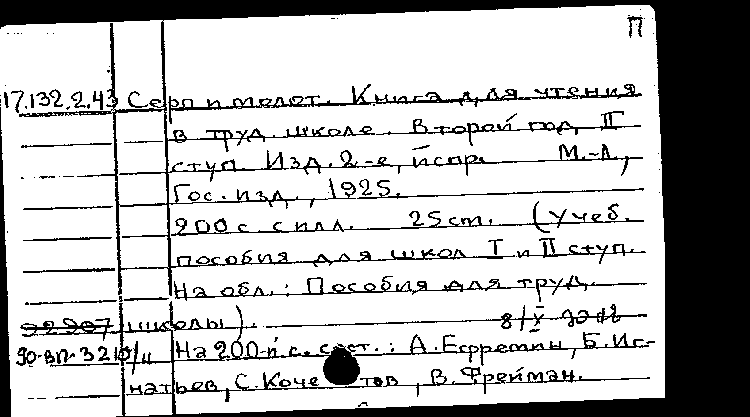 П
17.132.2.43 Серп и молот. Книга для чтения
в труд. школе. Второй год II
ступ. Изд. 2-е, испр. М.-Л.,
Гос. изд., 1925.
200 с с илл. 25 cm. (Учеб.
пособия для школ I и II ступ.
На обл.: Пособия для труд.
школы).
На 200-й с. сост.: А. Ефремин, Б. Иг-
натьев, С. Коче тов, В. Фрейман.